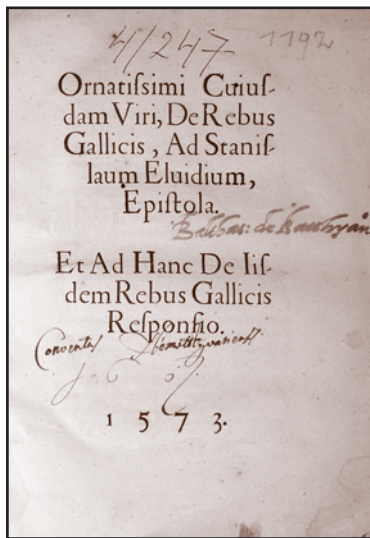 4/247 1192
Ornatiſsimi Cuiuſ-
dam Viri, De Rebus
Gallicis, Ad Staniſ-
laum Eluidium,
Epiſtola.
Balthas: de Batthyán
Et Ad Hanc De Iiſ-
dem Rebus Gallicis
Reſponſio.
Conventus
1 5 7 3.